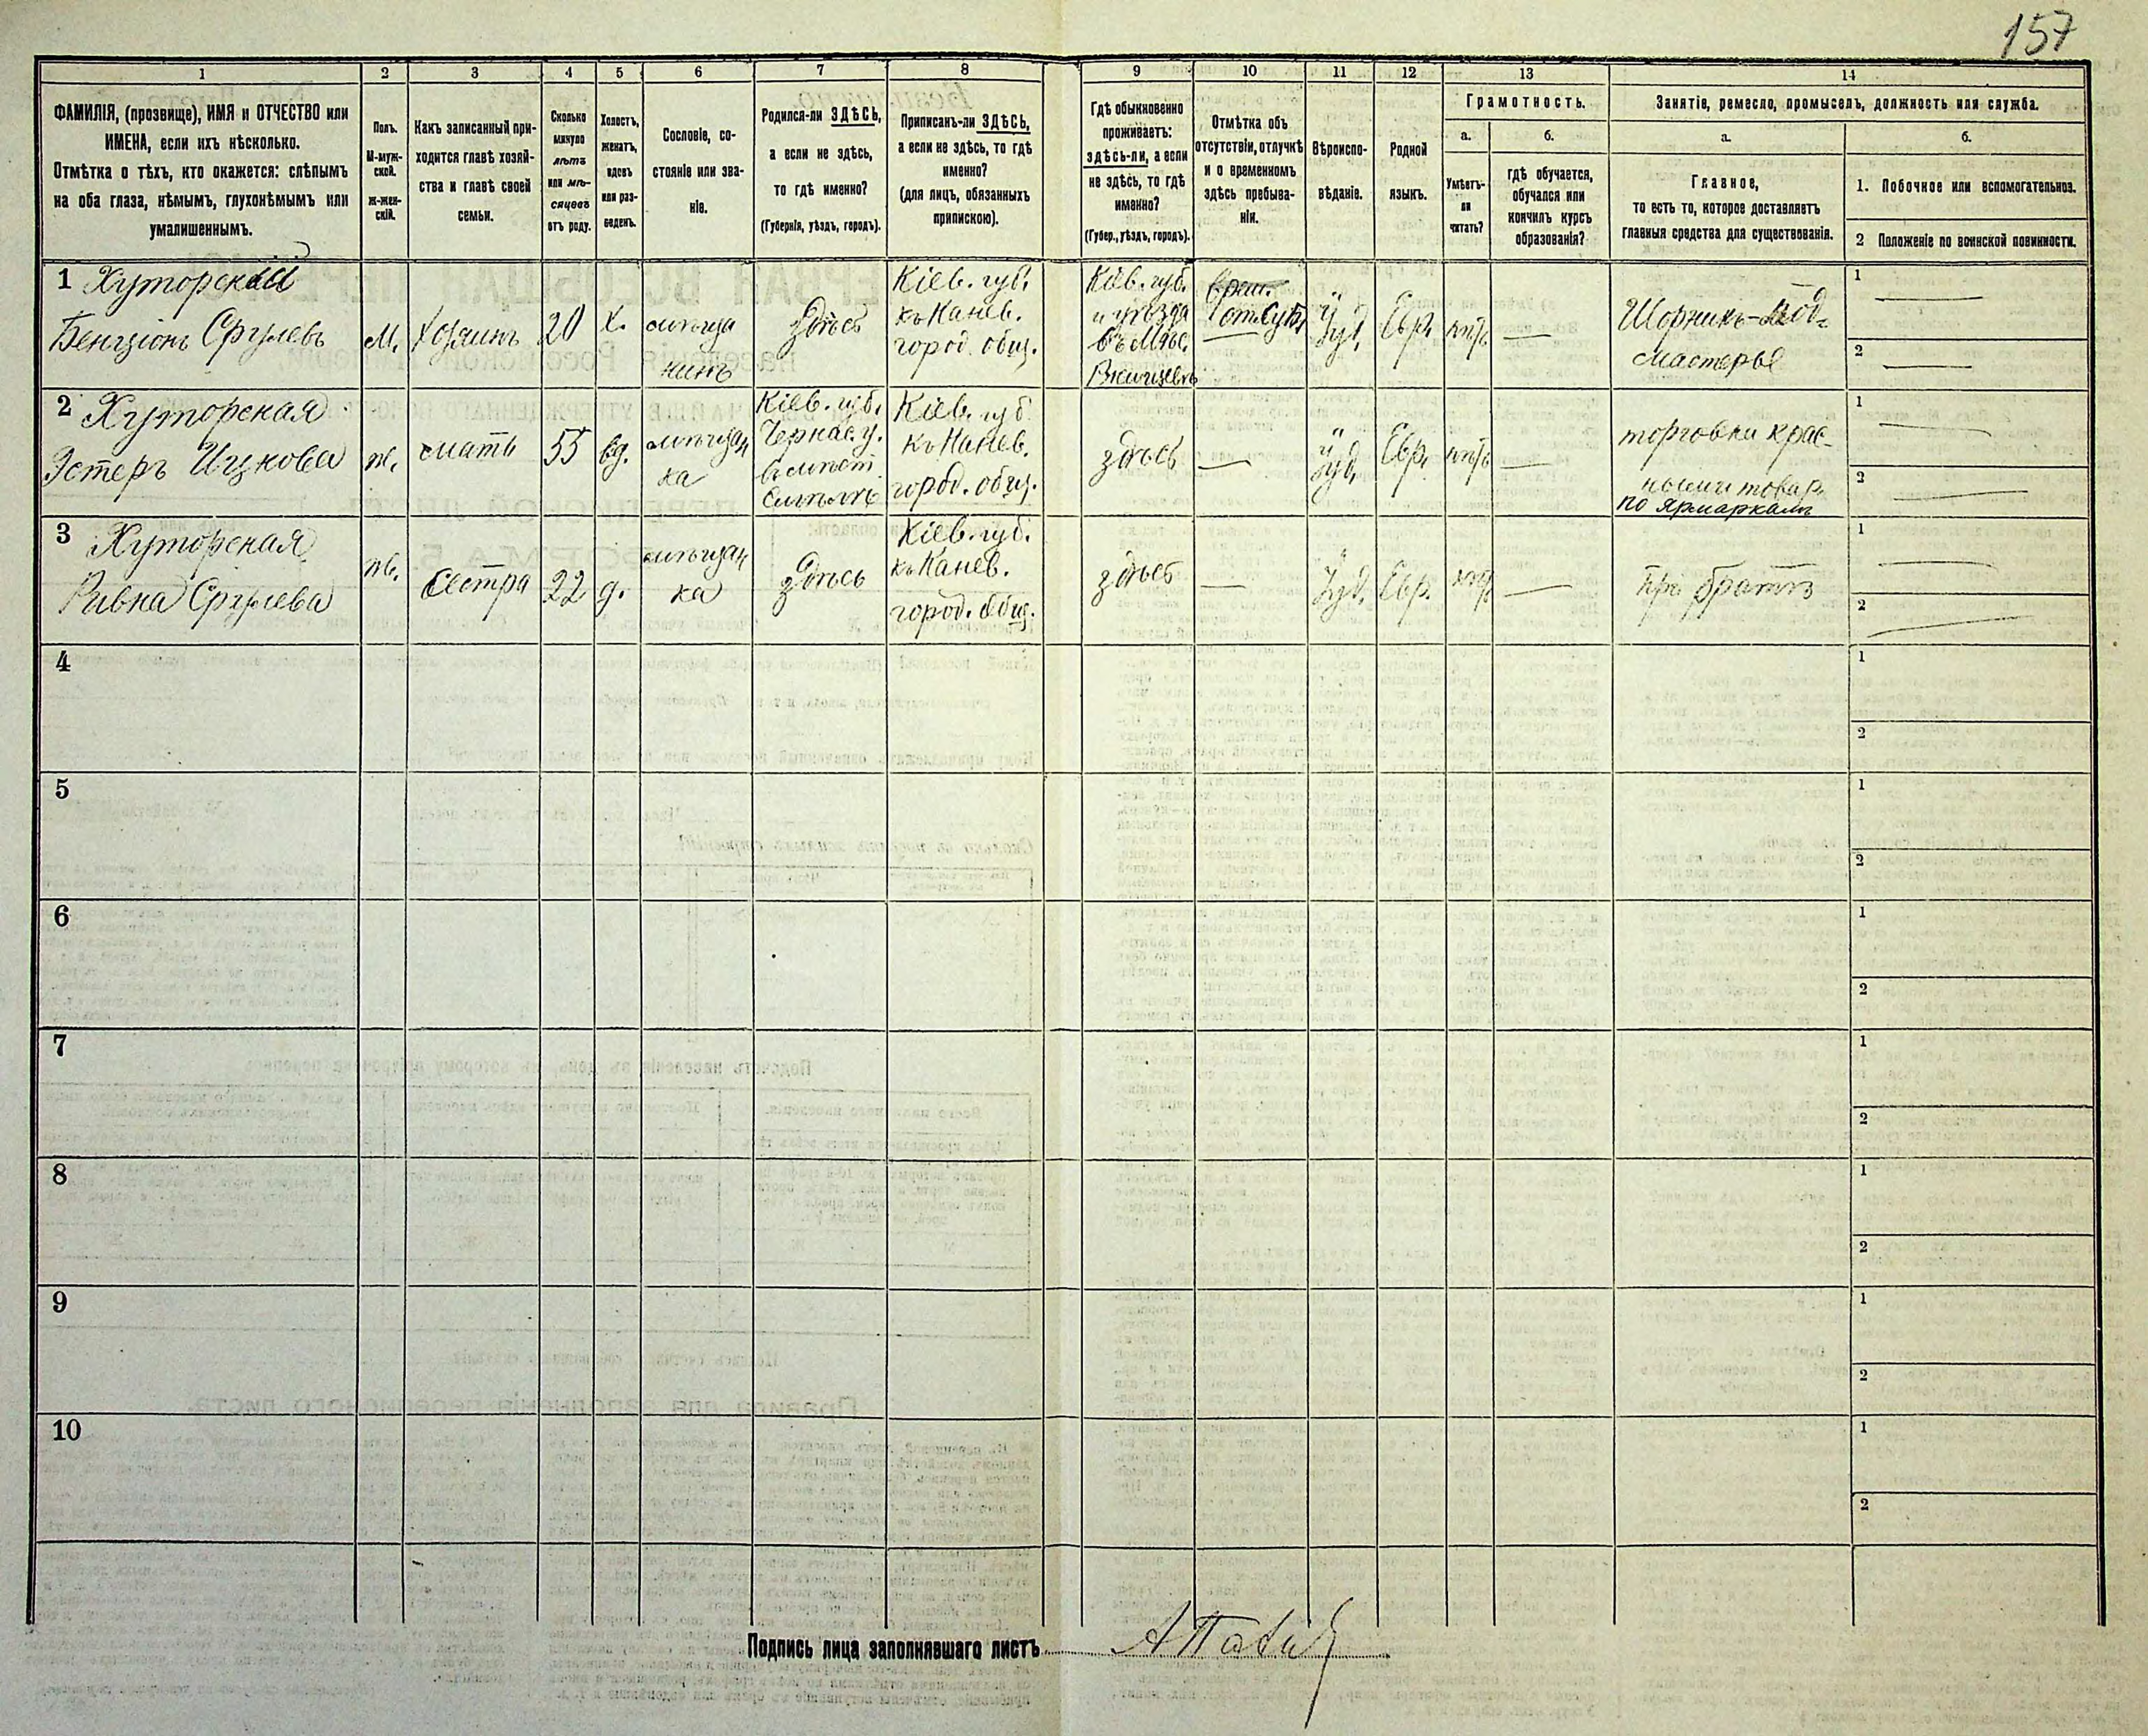 157
1 2 3 4 5 6 7 8 9 10 11 12 13 14
ФАМИЛІЯ, (прозвище), ИМЯ и ОТЧЕСТВО или
ИМЕНА, если ихъ нѣсколько.
Отмѣтка о тѣхъ, кто окажется: слѣпымъ
на оба глаза, нѣмымъ, глухонѣмымъ или
умалишеннымъ.
Полъ.
М-муж-
ской.
ж-жен-
скій.
Какъ записанный при-
ходится главѣ хозяй-
ства и главѣ своей
семьи.
Сколько
минуло
лѣтъ
или мѣ-
сяцевъ
отъ роду.
Холостъ,
женатъ,
вдовъ
или раз-
веденъ.
Сословіе, со-
стояніе или зва-
ніе.
Родился-ли ЗДѢСЬ,
а если не здѣсь,
то гдѣ именно?
(Губернія, уѣздъ, городъ).
Приписанъ-ли ЗДѢСЬ,
а если не здѣсь, то гдѣ
именно?
(для лицъ, обязанныхъ
припискою).
Гдѣ обыкновенно
проживаетъ:
здѣсь-ли, а если
не здѣсь, то гдѣ
именно?
(Губер., уѣздъ, городъ).
Отмѣтка объ
отсутствіи, отлучкѣ
и о временномъ
здѣсь пребыва-
ніи.
Вѣроиспо-
вѣданіе.
Родной
языкъ.
Грамотность.
а.
Умѣетъ-
ли
читать?
б.
гдѣ обучается,
обучался или
кончилъ курсъ
образованія?
Занятіе, ремесло, промыселъ, должность или служба.
а.
Главное,
то есть то, которое доставляетъ
главныя средства для существованія.
б.
1. Побочное или вспомогательное.
2 Положеніе по воинской повинности.
1 Хуторскій
Бенціонъ Срулевъ
м.
хозяинъ
20
х.
мѣща
нинъ
здѣсь
Кіев. губ.
къ Канев.
город. общ.
Кіев. губ.
и уѣзда
въ м.
отсут.
Іуд.
Евр.
—
Шорникъ-под-
мастерье
1 —
2 —
2 Хуторская
Эстеръ Ицкова
ж.
мать
55
вд.
мѣщан
ка
Кіев. губ.
Черкас. у.
Кіев. губ.
къ Канев.
город. общ.
здѣсь
—
Іуд.
Евр.
—
торговка крас-
нымъ товар.
по ярмаркамъ
1 —
2 —
3 Хуторская
Ривка Срулева
ж.
сестра
22
д.
мѣщан
ка
здѣсь
Кіев. губ.
къ Канев.
город. общ.
здѣсь
—
Іуд.
Евр.
—
при братѣ
1 —
2 —
4
1
2
5
1
2
6
1
2
7
1
2
8
1
2
9
1
2
10
1
2
Подпись лица заполнявшаго листъ